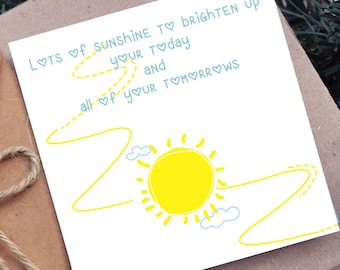 Lots of sunshine to brighten up
your today
and
all of your tomorrows